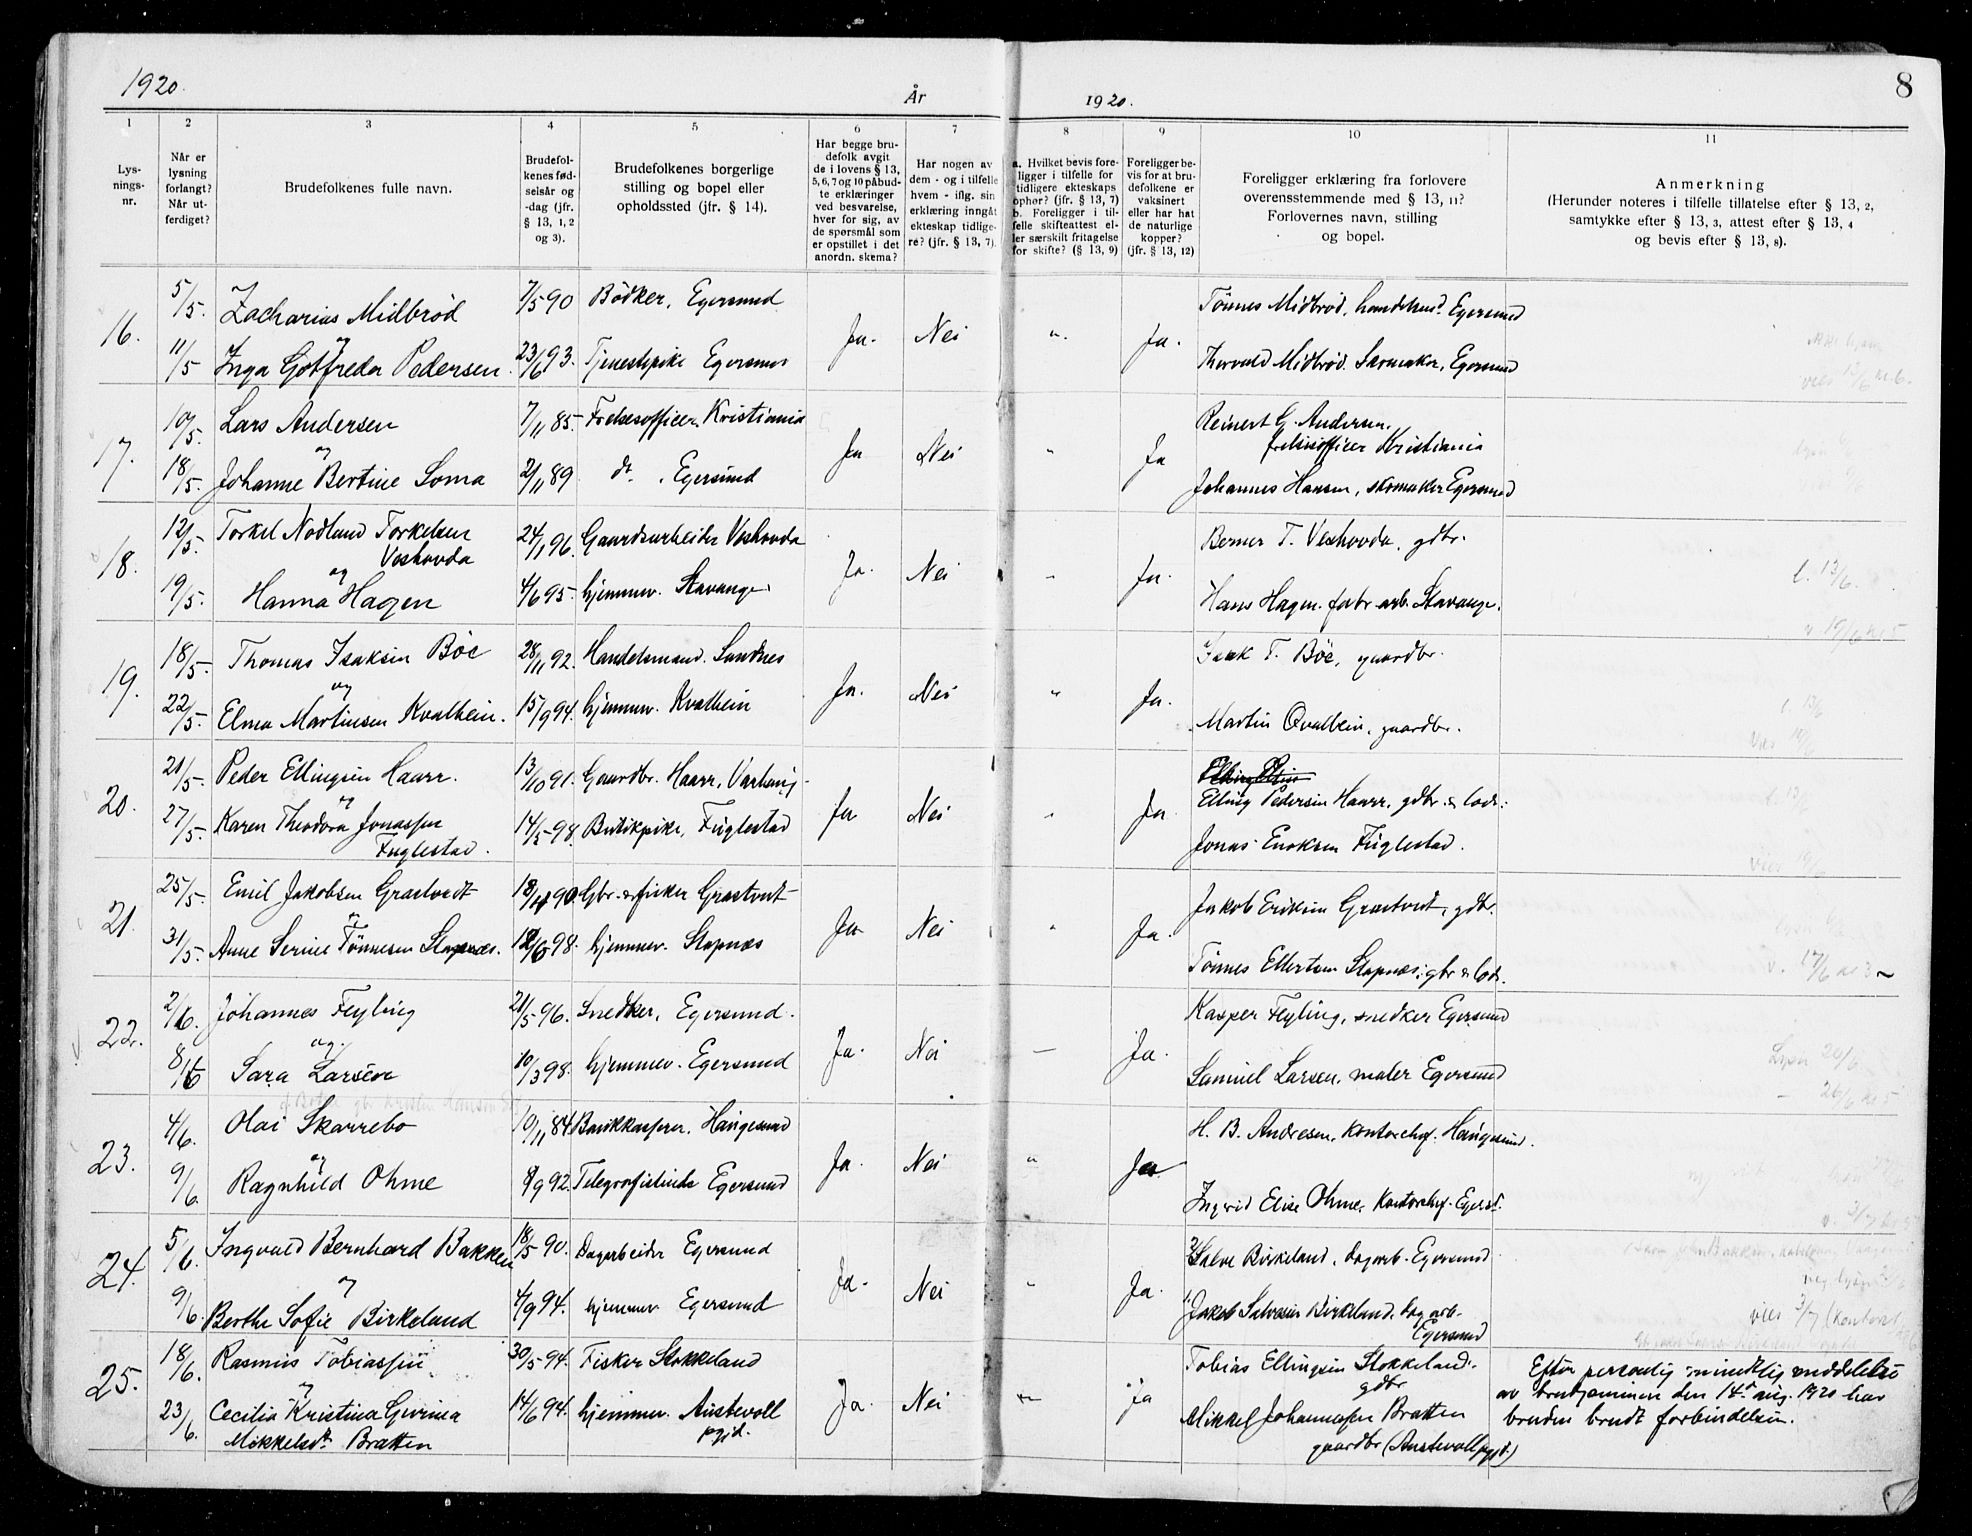 1920.
År
1920.
8
1
Lys-
nings-
nr.
2
Når er
lysning
forlangt?
Når ut-
ferdiget?
3
Brudefolkenes fulle navn.
4
Brudefol-
kenes fød-
selsår og
-dag (jfr.
§ 13, 1, 2
og 3).
5
Brudefolkenes borgerlige
stilling og bopel eller
opholdssted (jfr. § 14).
6
Har begge bru-
defolk avgit
de i lovens § 13,
5, 6, 7 og 10 påbud-
te erklæringer
ved besvarelse,
hver for sig, av
de spørsmål som
er opstillet i det
anordn. skema?
7
Har nogen av
dem - og i tilfelle
hvem - iflg. sin
erklæring inngåt
ekteskap tidlige-
re? (jfr. § 13, 7).
8
a. Hvilket bevis fore-
ligger i tilfelle for
tidligere ekteskaps
ophør? (jfr. § 13, 7)
b. Foreligger i til-
felle skifteattest el-
ler særskilt fritagelse
for skifte? (§ 13, 9)
9
Foreligger be-
vis for at bru-
defolkene er
vaksinert
eller har hat
de naturlige
kopper?
(jfr. § 13, 12)
10
Foreligger erklæring fra forlovere
overensstemmende med § 13, 11?
Forlovernes navn, stilling
og bopel.
11
Anmerkning
(Herunder noteres i tilfelle tillatelse efter § 13, 2,
samtykke efter § 13, 3, attest efter § 13, 4
og bevis efter § 13, 8).
16.
5/5.
Zacharias Midbrød
7/5 90
Bødker, Egersund
og
Ja.
Nei
"
Ja.
Tönnes Midbröd, handelsmd. Egersund
11/5
Inga Gotfreda Pedersen.
23/6 93.
Tjenestepike Egersund
Thorvald Midbröd. Skomaker, Egersund
vies 13/6 kl. 6.
17.
10/5.
Lars Andersen
7/11 85.
Frelsesofficer, Kristiania
og
Ja
Nei
"
Ja
Reinert G. Andersen,
frelsesofficer Kristiania
18/5.
Johanne Bertine Soma
2/11 89
do. Egersund
Johannes Hansen, skomaker Egersund
18.
12/5.
Torkel Nodland Torkelsen
Veshovda
24/1 96.
Gaardsarbeider Veshovda
og
Ja.
Nei
"
Ja.
Berner T. Veshovda, gdbr.
l. 13/6.
19/5.
Hanna Hagen
4/6 95.
hjemmev. Stavanger
Hans Hagen. fabr. arb. Stavanger.
v. 19/6 kl 5
19.
18/5.
Thomas Isaksen Böe
28/11 92.
Handelsmand. Sandnes
og
Ja.
Nei
"
Ja.
Isak T. Böe, gaardbr.
l. 13/6
22/5.
Elma Martinsen Kvalbein.
15/9 94.
hjemmev. Kvalbein
Martin Qvalbein, gaardbr.
20.
21/5.
Peder Ellingsen Haarr.
13/10 91.
Gaardbr. Haarr, Varhaug
og
Ja
Nei
"
Ja
Elling Pedersen Haarr, gdbr. & lods.
27/5.
Karen Theodora Jonassen
Fuglestad.
14/5 98.
Butikpike, Fuglestad
Jonas Enoksen Fuglestad.
vies 19/6
21.
25/5.
Emil Jakobsen Grastveit
Gbr. & fisker Grastveit
og
Ja
Nei
"
Ja.
Jakob Eriksen Grastveit, gdbr.
31/5.
Anne Serine Tönnesen Stapnæs.
hjemmev. Stapnæs
Tönnes Ellertsen Stapnæs, gbr & lods.
v. 17/6 kl 3
22.
2/6.
Johannes Feyling
21/5 96.
Snedker, Egersund.
og.
Ja.
Nei
Ja.
Kasper Feyling, snedker Egersund
8/6
Sara Larsen
10/3 98.
hjemmev. Egersund
Samuel Larsen, maler Egersund
Lyser 20/6
26/6 kl 5
23.
4/6.
Olai Skarrebo
10/11 84.
Bankkasserer, Haugesund
og
Ja.
Nei
"
Ja.
H. B. Andresen, Kontorchef. Haugesund.
9/6.
Ragnhild Ohme
8/9 92.
Telegrafistinde Egersund
Ingrid Elise Ohme, Kontorchef. Egers.
24.
5/6.
Ingvald Bernhard Bakken
18/5 90.
Dagarbeider Egersund
og
Ja.
Nei
"
Ja.
Salve Birkeland, dagarb. Egersund
9/6.
Berthe Sofie Birkeland
4/9 94.
hjemmev. Egersund
Jakob Salvesen Birkeland, dagarb.
Egersund
vies 3/7 (kontoret
25.
18/6.
Rasmus Tobiassen
30/5 94.
Fisker Stokkeland
og
Ja.
Nei
"
Ja
Tobias Ellingsen Stokkeland.
gdbr
Efter personlig mundtlig meddelelse
av brudgommen den 14d aug. 1920 har
bruden brudt forbindelsen.
23/6.
Cecilia Kristina Gurina
Mikkelsdt. Bratten
14/6 94.
hjemmev. Austevoll
pgjd.
Mikkel Johannessen Bratten
gaardbr (Austevoll pgjd.)